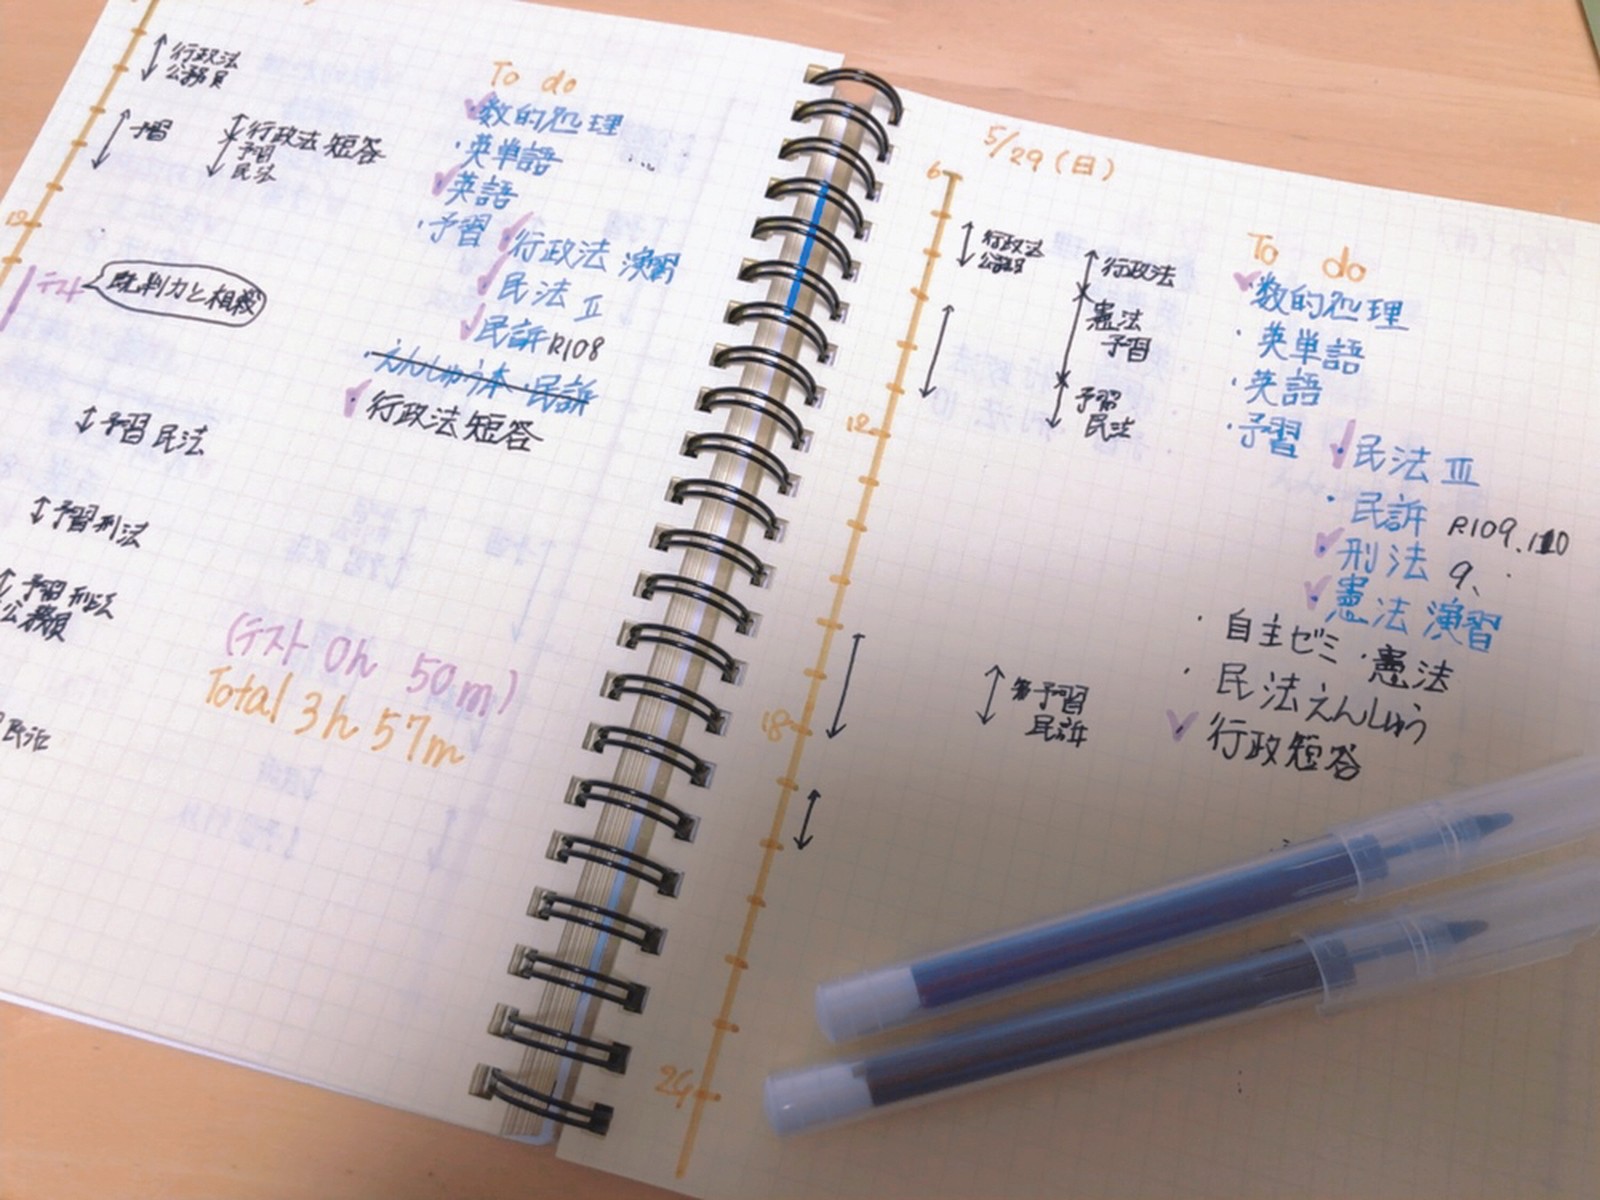 行政法
公務員
予習
行政法短答
予習
民法
12
テスト
既判力と相殺
予習 民法
予習刑法
予習 刑法
公務員
民法
To do
・数的処理
・英単語
・英語
・予習
・行政法 演習
・民法 II
・民訴 R108
・えんしゅう本・民訴
・行政法短答
(テスト 0h 50m)
Total 3h 57m
5/29(日)
6
行政法
公務員
行政法
憲法
予習
予習
民法
12
18
予習
民訴
24
To do
・数的処理
・英単語
・英語
・予習
・民法 III
・民訴 R109.110
・刑法 9、
・憲法 演習
・自主ゼミ・憲法
・民法えんしゅう
・行政短答